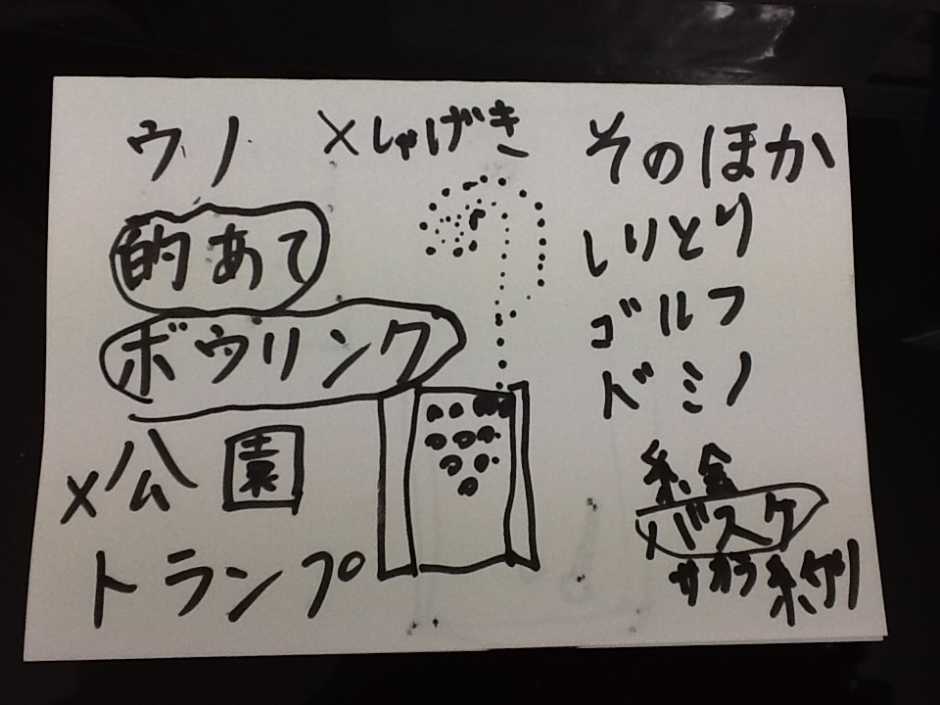 ウノ
×しゃげき
的あて
ボウリンク
×公園
トランプ
そのほか
しりとり
ゴルフ
ドミノ
絵
バスケ